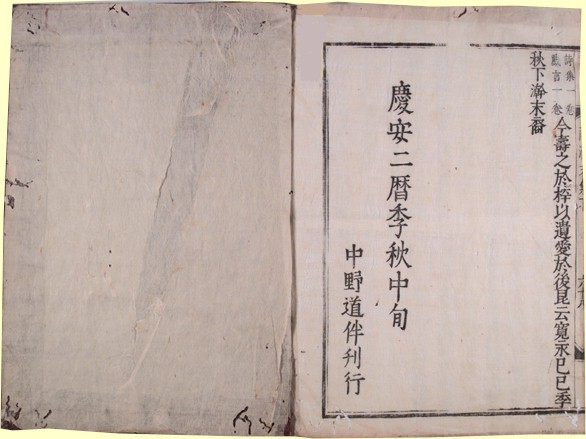 詩集一卷
言一卷
今壽之於梓以遺愛於後昆云寬永己巳季
秋下澣末裔
慶安二暦季秋中旬
中野道伴刊行